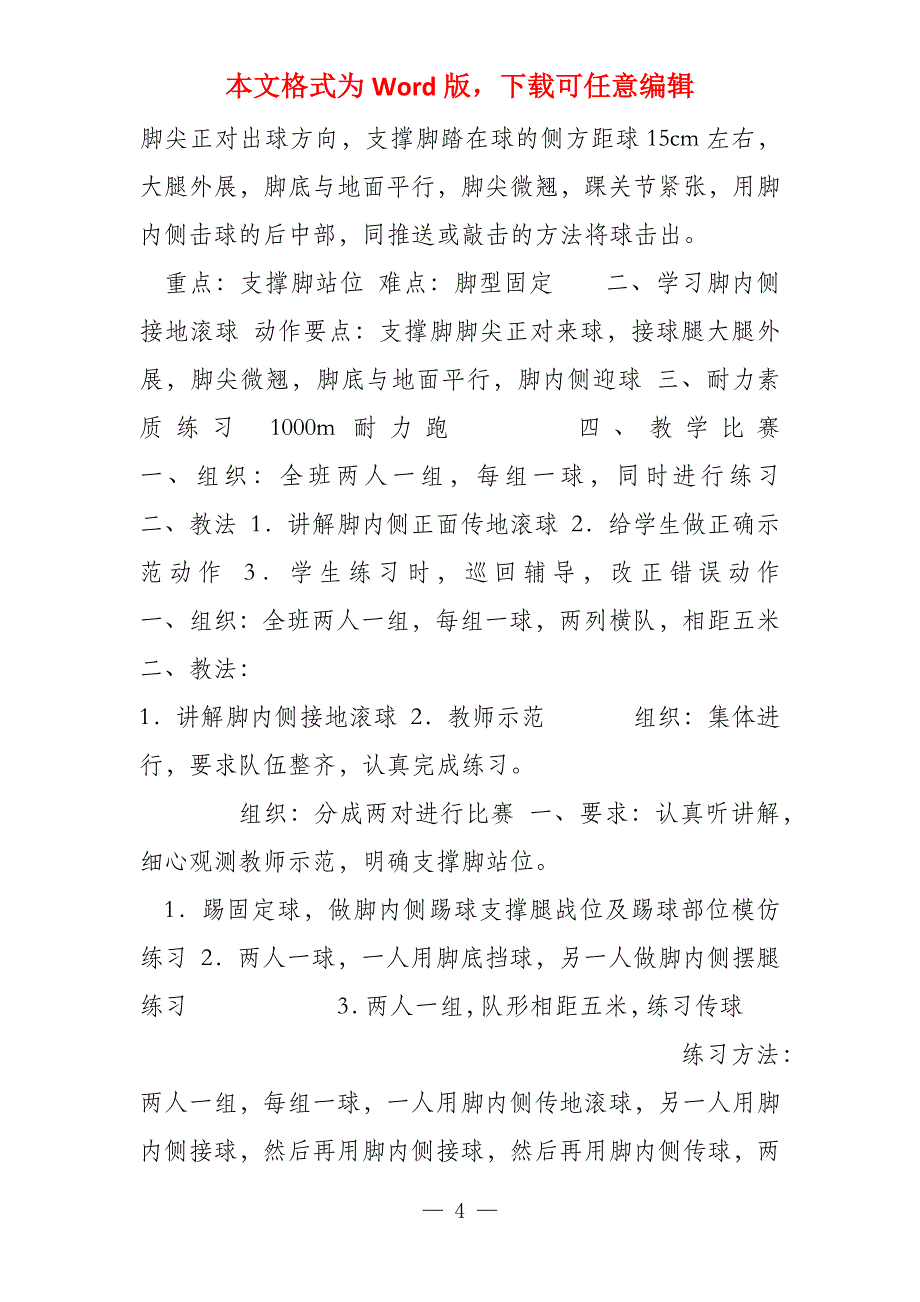 本文格式为 Word 版，下载可任意编辑
脚尖正对出球方向，支撑脚踏在球的侧方距球 15cm 左右，
大腿外展，脚底与地面平行，脚尖微翘，踝关节紧张，用脚
内侧击球的后中部，同推送或敲击的方法将球击出。
重点：支撑脚站位 难点：脚型固定 二、学习脚内侧
接地滚球 动作要点：支撑脚脚尖正对来球，接球腿大腿外
展，脚尖微翘，脚底与地面平行，脚内侧迎球 三、耐力素
质练习 1000m 耐力跑 四、教学比赛
一、组织：全班两人一组，每组一球，同时进行练习
二、教法 1．讲解脚内侧正面传地滚球 2．给学生做正确示
范动作 3．学生练习时，巡回辅导，改正错误动作
一、组织：全班两人一组，每组一球，两列横队，相距五米
二、教法：
1．讲解脚内侧接地滚球 2．教师示范 组织：集体进
行，要求队伍整齐，认真完成练习。
组织：分成两对进行比赛 一、要求：认真听讲解，
细心观测教师示范，明确支撑脚站位。
1．踢固定球，做脚内侧踢球支撑腿战位及踢球部位模仿
练习 2．两人一球，一人用脚底挡球，另一人做脚内侧摆腿
练习 3．两人一组，队形相距五米，练习传球
练习方法：
两人一组，每组一球，一人用脚内侧传地滚球，另一人用脚
内侧接球，然后再用脚内侧接球，然后再用脚内侧传球，两
— 4 —